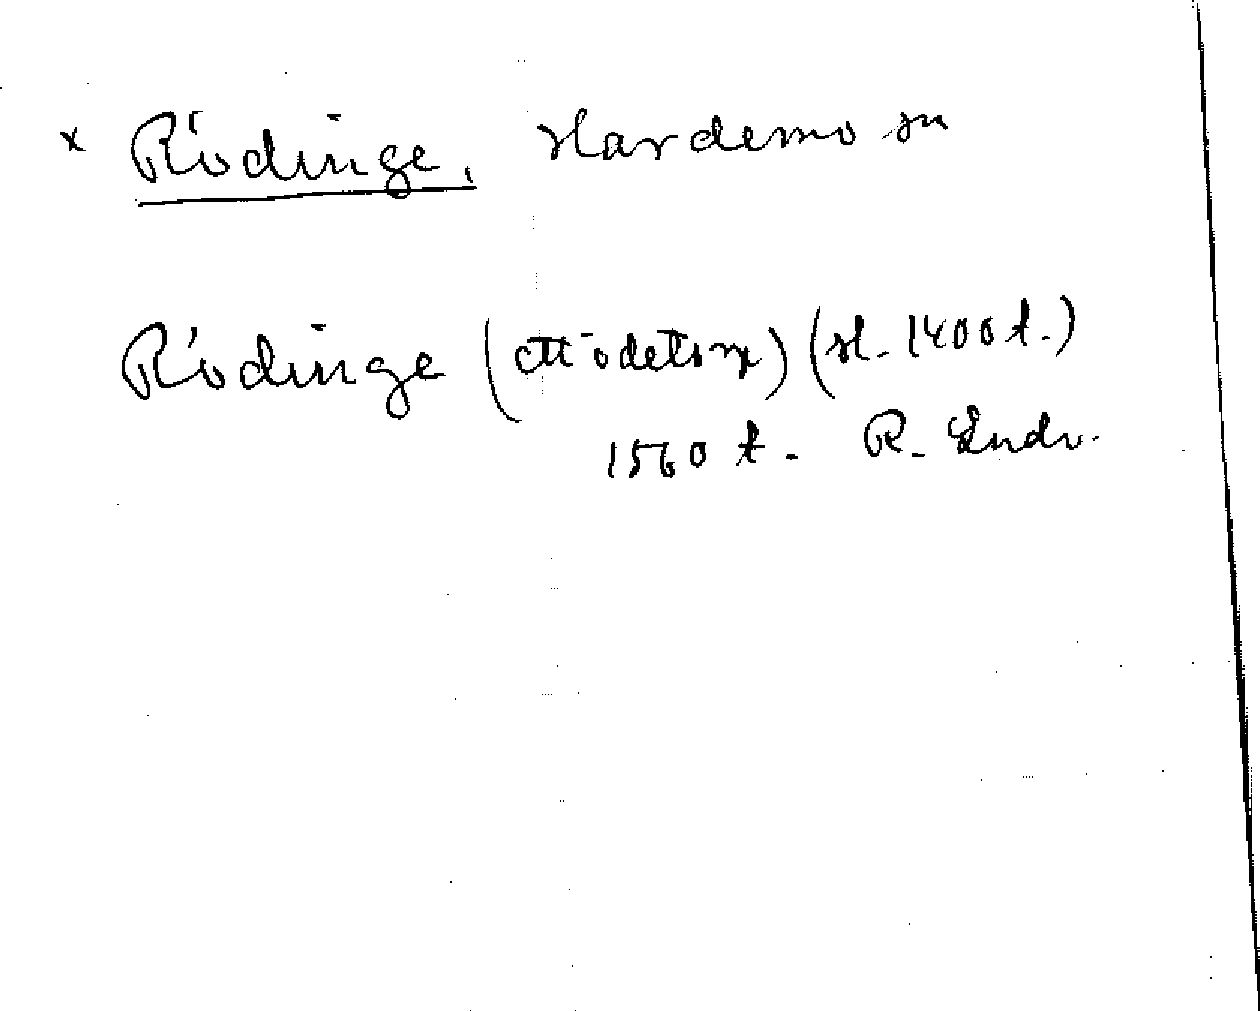 x Rödinge, Hardemo sn
Rödinge (ett ödetorp) (sl. 1400 t.)
1560 t. R. Lindv.